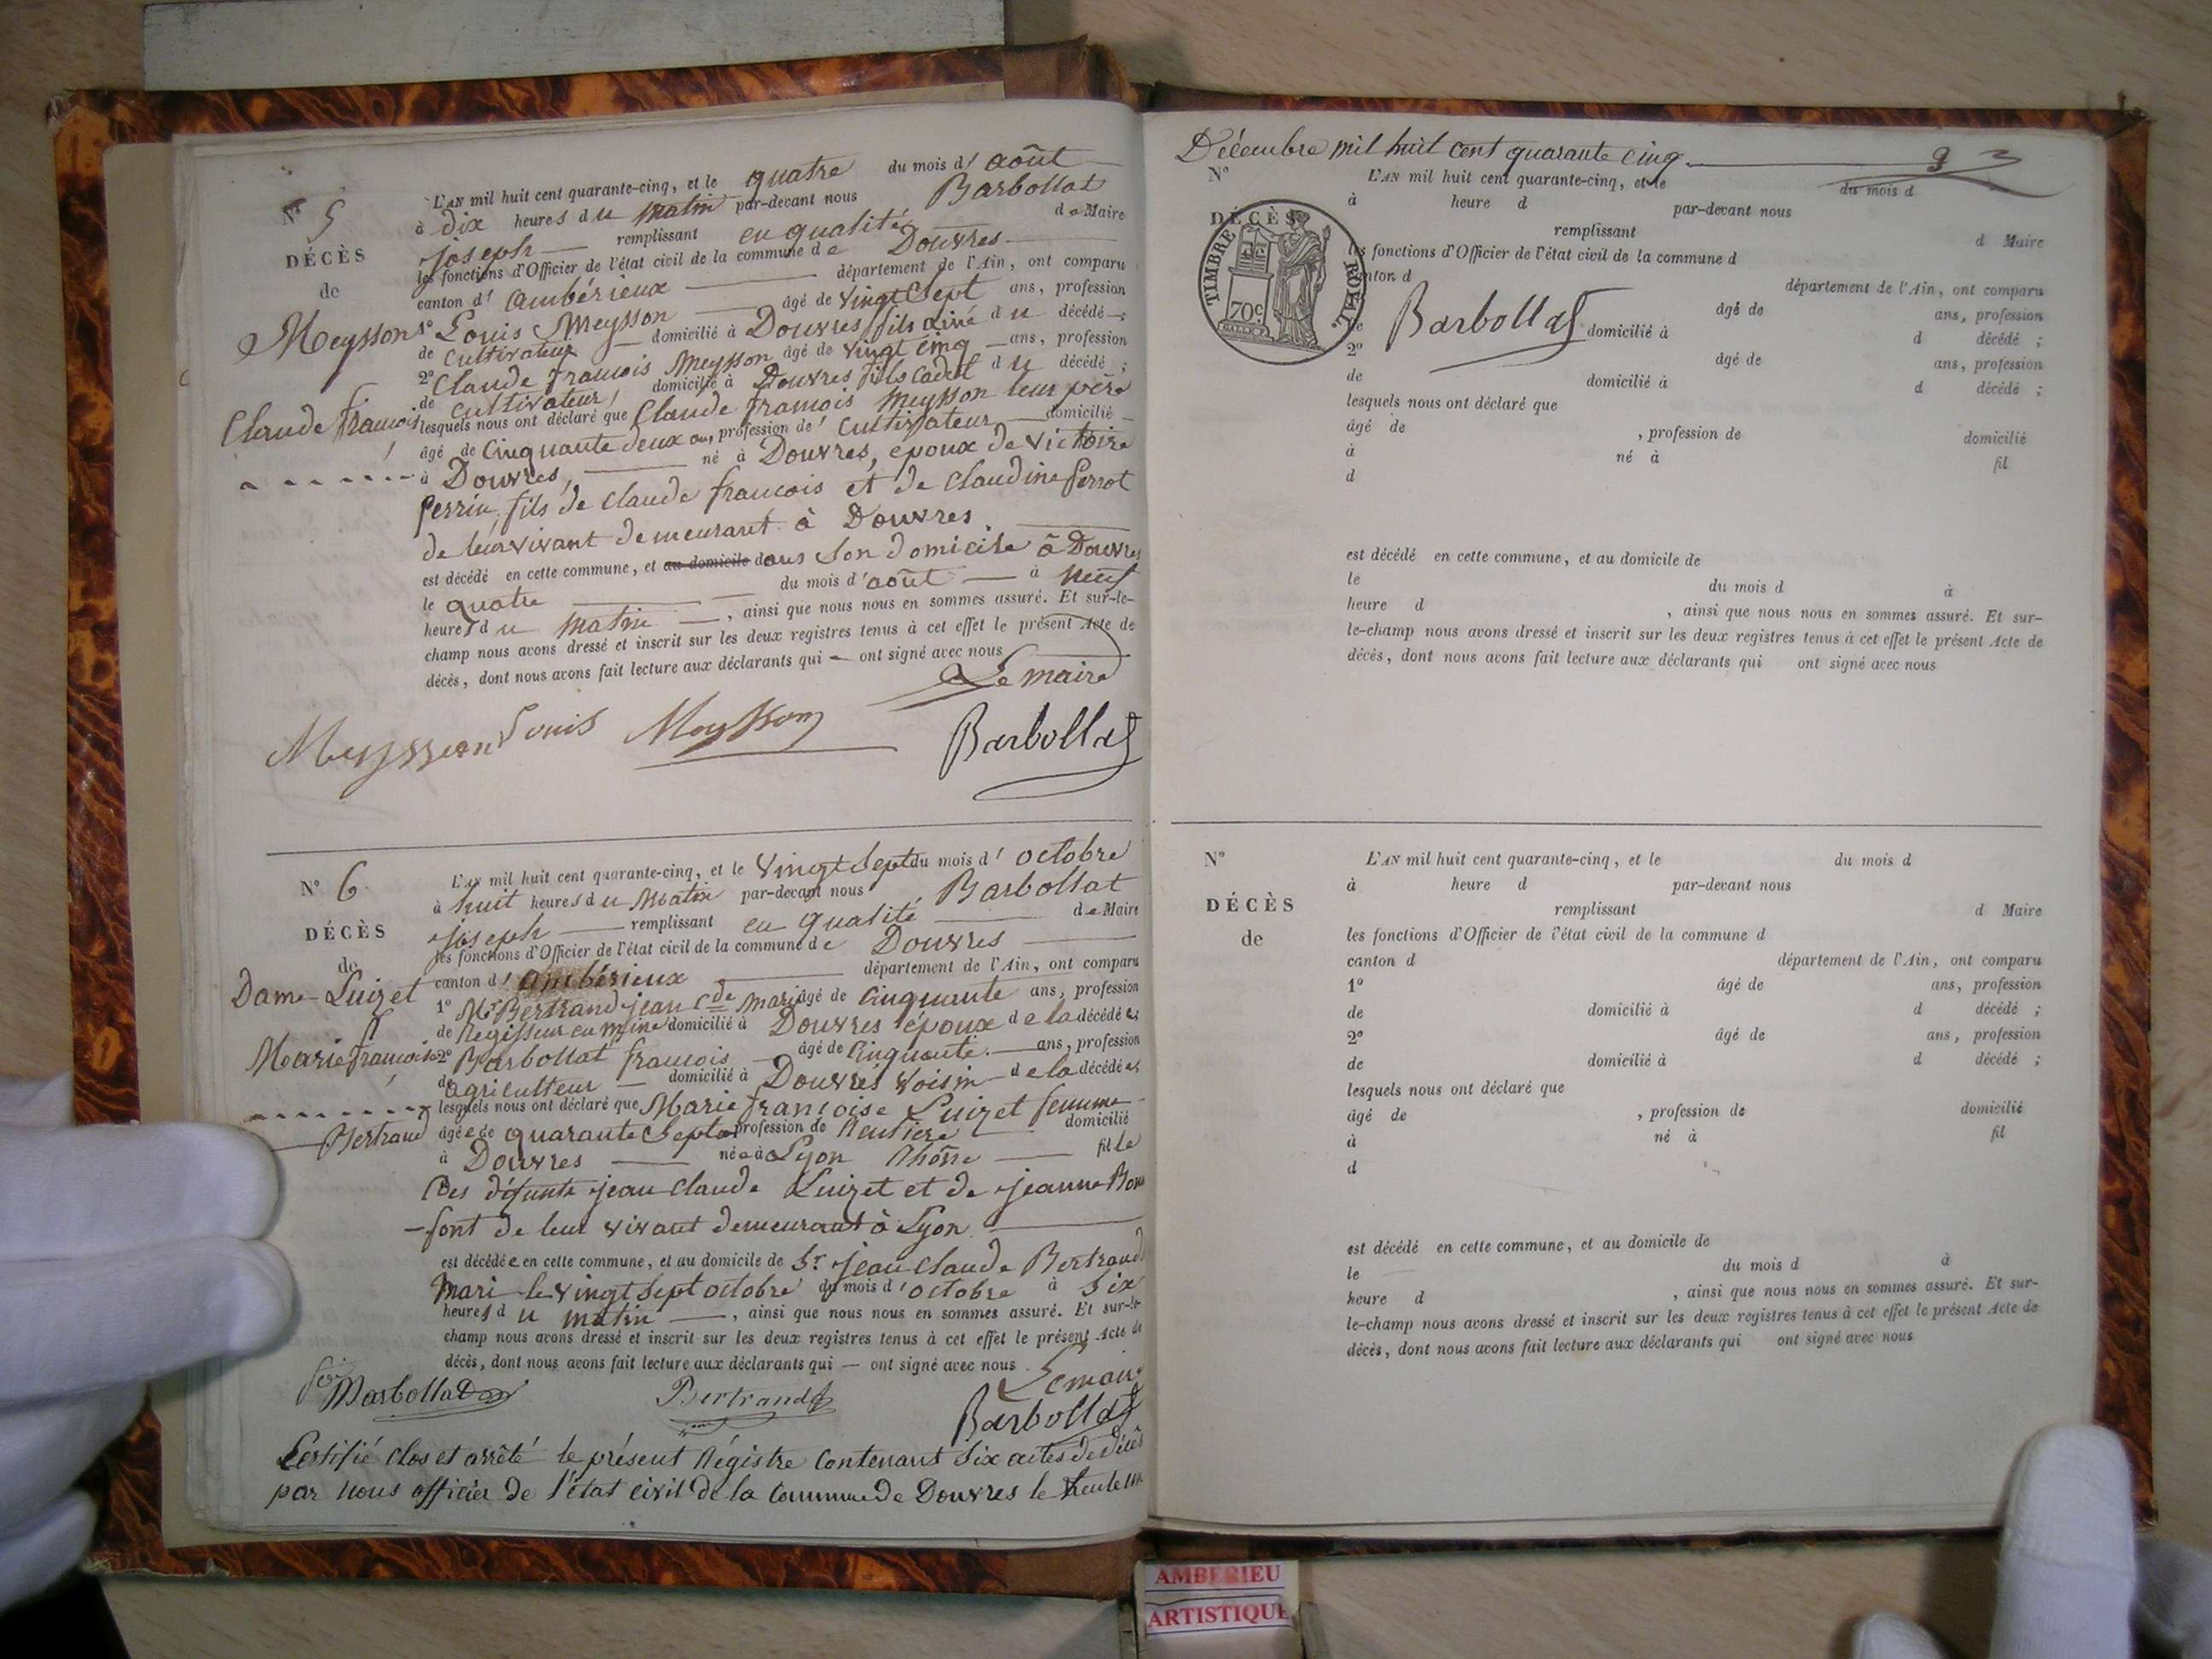 N° 5
DÉCÈS
de
Meysson
Claude françois
L'AN mil huit cent quarante-cinq, et le quatre du mois d'août
à dix heures du matin par-devant nous Barbollat
joseph remplissant en qualité de Maire
les fonctions d'Officier de l'état civil de la commune de Douvres
canton d'ambérieux département de l'Ain, ont comparu
1° Louis Meysson âgé de vingt sept ans, profession
de cultivateur domicilié à Douvres fils ainé du décédé ;
2° Claude françois Meysson âgé de vingt cinq ans, profession
de cultivateur domicilié à Douvres fils cadet du décédé ;
lesquels nous ont déclaré que Claude françois Meysson leur père
âgé de cinquante deux ans, profession de cultivateur domicilié
à Douvres, né à Douvres, époux de victoire
perrin, fils de claude francois et de claudine perrot
de leur vivant demeurant à Douvres.
est décédé en cette commune, et au domicile dans son domicile à Douvres
le quatre du mois d'août à neuf
heures du matin, ainsi que nous nous en sommes assuré. Et sur-le-
champ nous avons dressé et inscrit sur les deux registres tenus à cet effet le présent Acte de
décès, dont nous avons fait lecture aux déclarants qui ont signé avec nous
Le maire
Meysson Louis Meysson Barbollat
N° 6
DÉCÈS
de
Dame Luizet
Marie françoise
Bertrand
L'AN mil huit cent quarante-cinq, et le vingt sept du mois d'octobre
à huit heures du matin par-devant nous Barbollat
joseph remplissant en qualité de Maire
les fonctions d'Officier de l'état civil de la commune de Douvres
canton d'ambérieux département de l'Ain, ont comparu
1° Mr Bertrand jean cde mari âgé de cinquante ans, profession
de Régisseur en mine domicilié à Douvres époux de la décédée ;
2° Barbollat françois âgé de cinquante ans, profession
d'agriculteur domicilié à Douvres voisin de la décédée ;
lesquels nous ont déclaré que Marie françoise Luizet femme
âgée de quarante sept ans profession de Rentière domicilié
à Douvres née à Lyon Rhône fille
des défunts jean claude Luizet et de jeanne Bon
-font de leur vivant demeurant à Lyon.
est décédée en cette commune, et au domicile de Sr jean claude Bertrand
mari le vingt sept octobre du mois d'octobre à six
heures du matin, ainsi que nous nous en sommes assuré. Et sur-le-
champ nous avons dressé et inscrit sur les deux registres tenus à cet effet le présent Acte de
décès, dont nous avons fait lecture aux déclarants qui — ont signé avec nous
Le maire
Barbollat Bertrand Barbollat
Certifié clos et arrêté le présent Régistre contenant six actes de décès
par nous officier de l'état civil de la commune de Douvres le trente un
Décembre mil huit cent quarante cinq.
N°
DÉCÈS
TIMBRE ROYAL.
70c.
L'AN mil huit cent quarante-cinq, et le du mois d
à heure d par-devant nous
remplissant d Maire
les fonctions d'Officier de l'état civil de la commune d
canton d département de l'Ain, ont comparu
Barbollat
âgé de ans, profession
de domicilié à d décédé ;
2° âgé de ans, profession
de domicilié à d décédé ;
lesquels nous ont déclaré que
âgé de , profession de domicilié
à né à fil
d
est décédé en cette commune, et au domicile de
le du mois d à
heure d , ainsi que nous nous en sommes assuré. Et sur-
le-champ nous avons dressé et inscrit sur les deux registres tenus à cet effet le présent Acte de
décès, dont nous avons fait lecture aux déclarants qui ont signé avec nous
N°
DÉCÈS
de
L'AN mil huit cent quarante-cinq, et le du mois d
à heure d par-devant nous
remplissant d Maire
les fonctions d'Officier de l'état civil de la commune d
canton d département de l'Ain, ont comparu
1° âgé de ans, profession
de domicilié à d décédé ;
2° âgé de ans, profession
de domicilié à d décédé ;
lesquels nous ont déclaré que
âgé de , profession de domicilié
à né à fil
d
est décédé en cette commune, et au domicile de
le du mois d à
heure d , ainsi que nous nous en sommes assuré. Et sur-
le-champ nous avons dressé et inscrit sur les deux registres tenus à cet effet le présent Acte de
décès, dont nous avons fait lecture aux déclarants qui ont signé avec nous
AMBERIEU
ARTISTIQUE